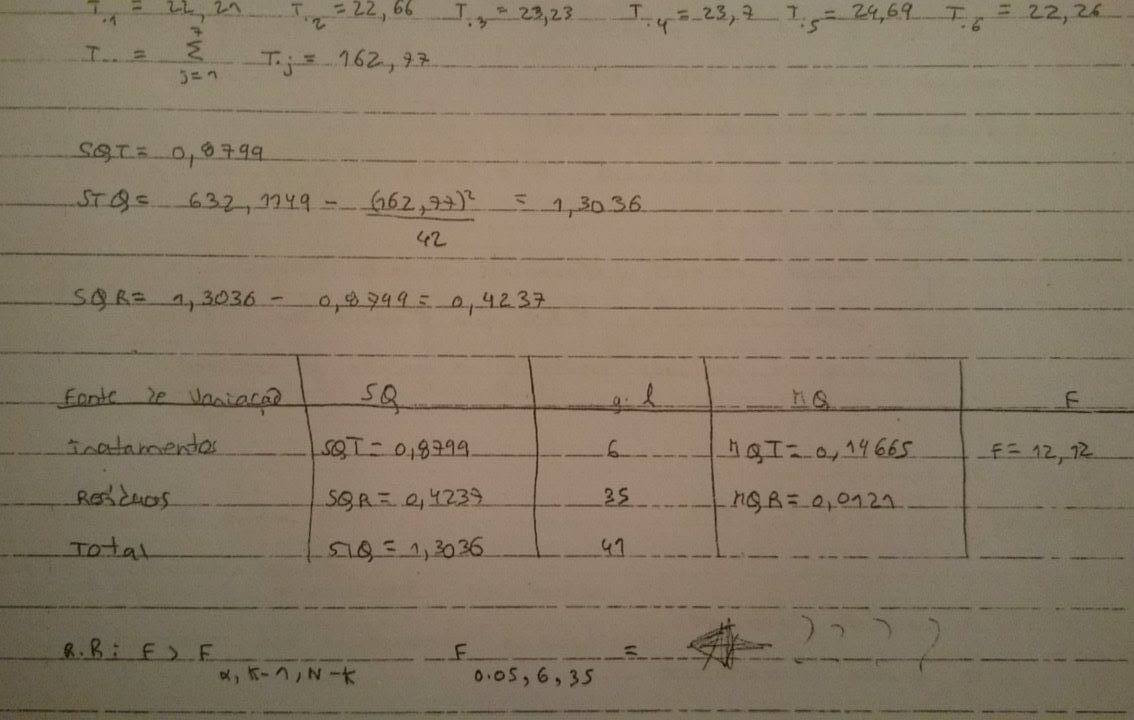 T.1 = 22,21 T.2 = 22,66 T.3 = 23,23 T.4 = 23,7 T.5 = 24,69 T.6 = 22,26
T.. = 7 Σ j=1 T.j = 162,77
SQT = 0,8799
STQ = 632,1149 - (162,77)² / 42 = 1,3036
SQR = 1,3036 - 0,8799 = 0,4237
Fonte de Variação SQ g.l MQ F
Tratamentos SQT = 0,8799 6 MQT = 0,14665 F = 12,12
Resíduos SQR = 0,4237 35 MQR = 0,0121
Total STQ = 1,3036 41
R.R: F > F α, K-1, N-K F 0.05, 6, 35 = ????